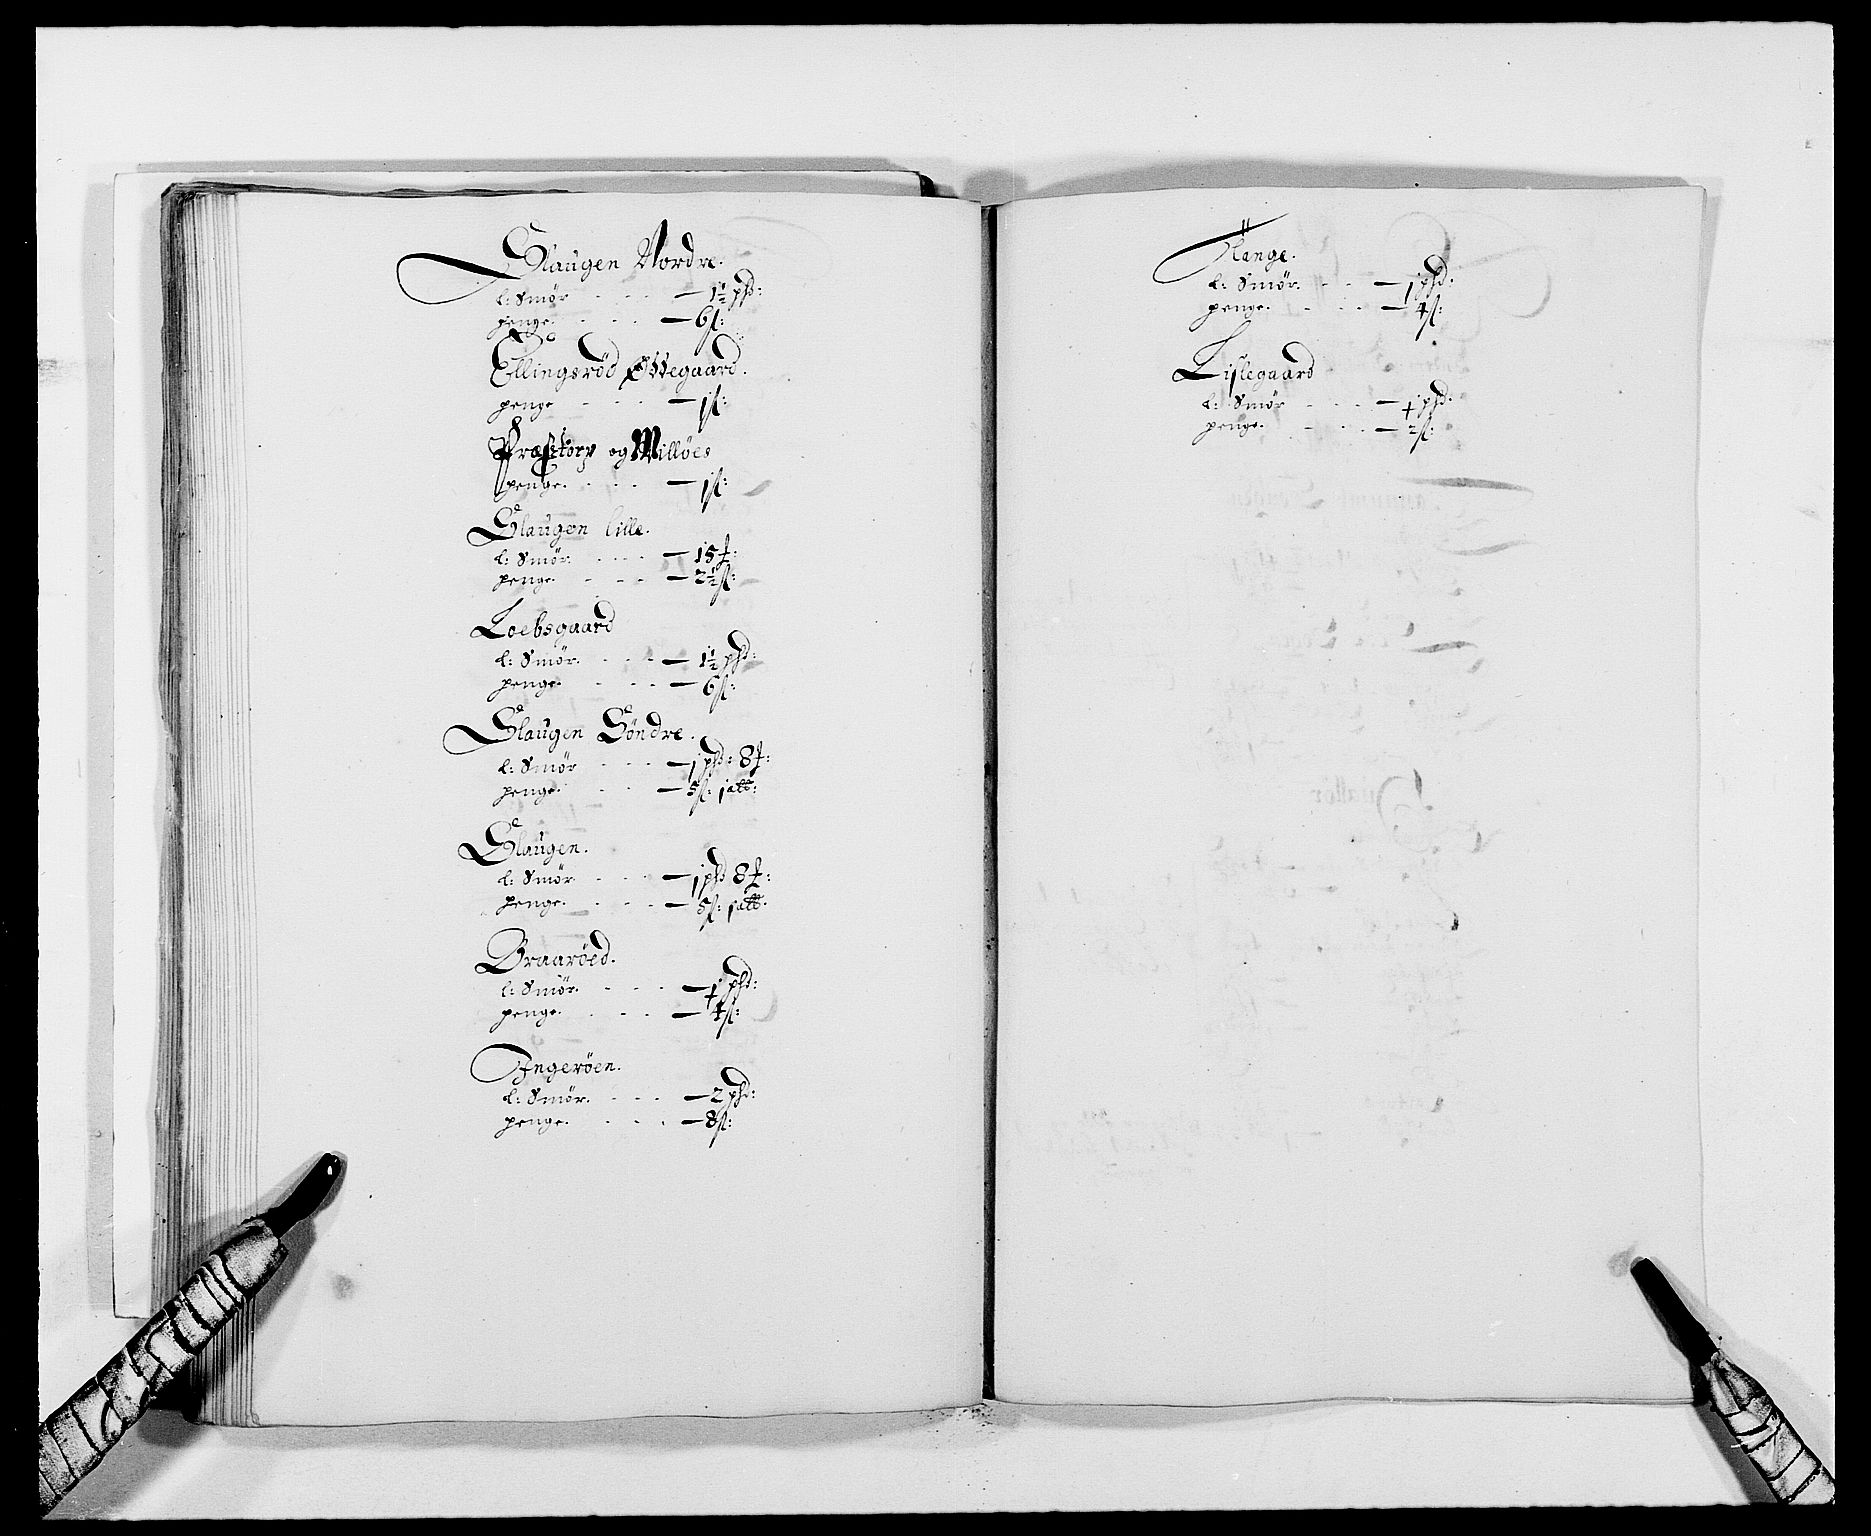 Slaugen Nordre.
l: Smör. - - - — 1½ phd:
penge. - - - — 6 ß:
Ellingsröd Ottegaard.
penge - - - — 1 ß:
Præstorp og Millöes
penge. - - - — 1 ß:
Slaugen lille.
l: Smör. - - - — 15 ℔:
penge. - - - — 2½ ß:
Loebsgaard
l: Smör. - - - — 1½ phd:
penge. - - - — 6 ß:
Slaugen Söndre.
l: Smör - - - — 1 phd: 8 ℔:
penge. - - - — 5 ß: 1 alb:
Slaugen.
l: Smör. - - - — 1 phd 8 ℔:
penge. - - - — 5 ß: 1 alb:
Braaröed.
l: Smör. - - - — 1 phd:
penge. - - - — 4 ß:
Ingeröen.
l: Smör. - - - — 2 phd:
penge. - - - — 8 ß:
Hange.
l: Smör. - - — 1 phd:
penge. - - - — 4 ß:
Lislegaard
l: Smör - - - — phd:
penge. - - - — 2 ß: